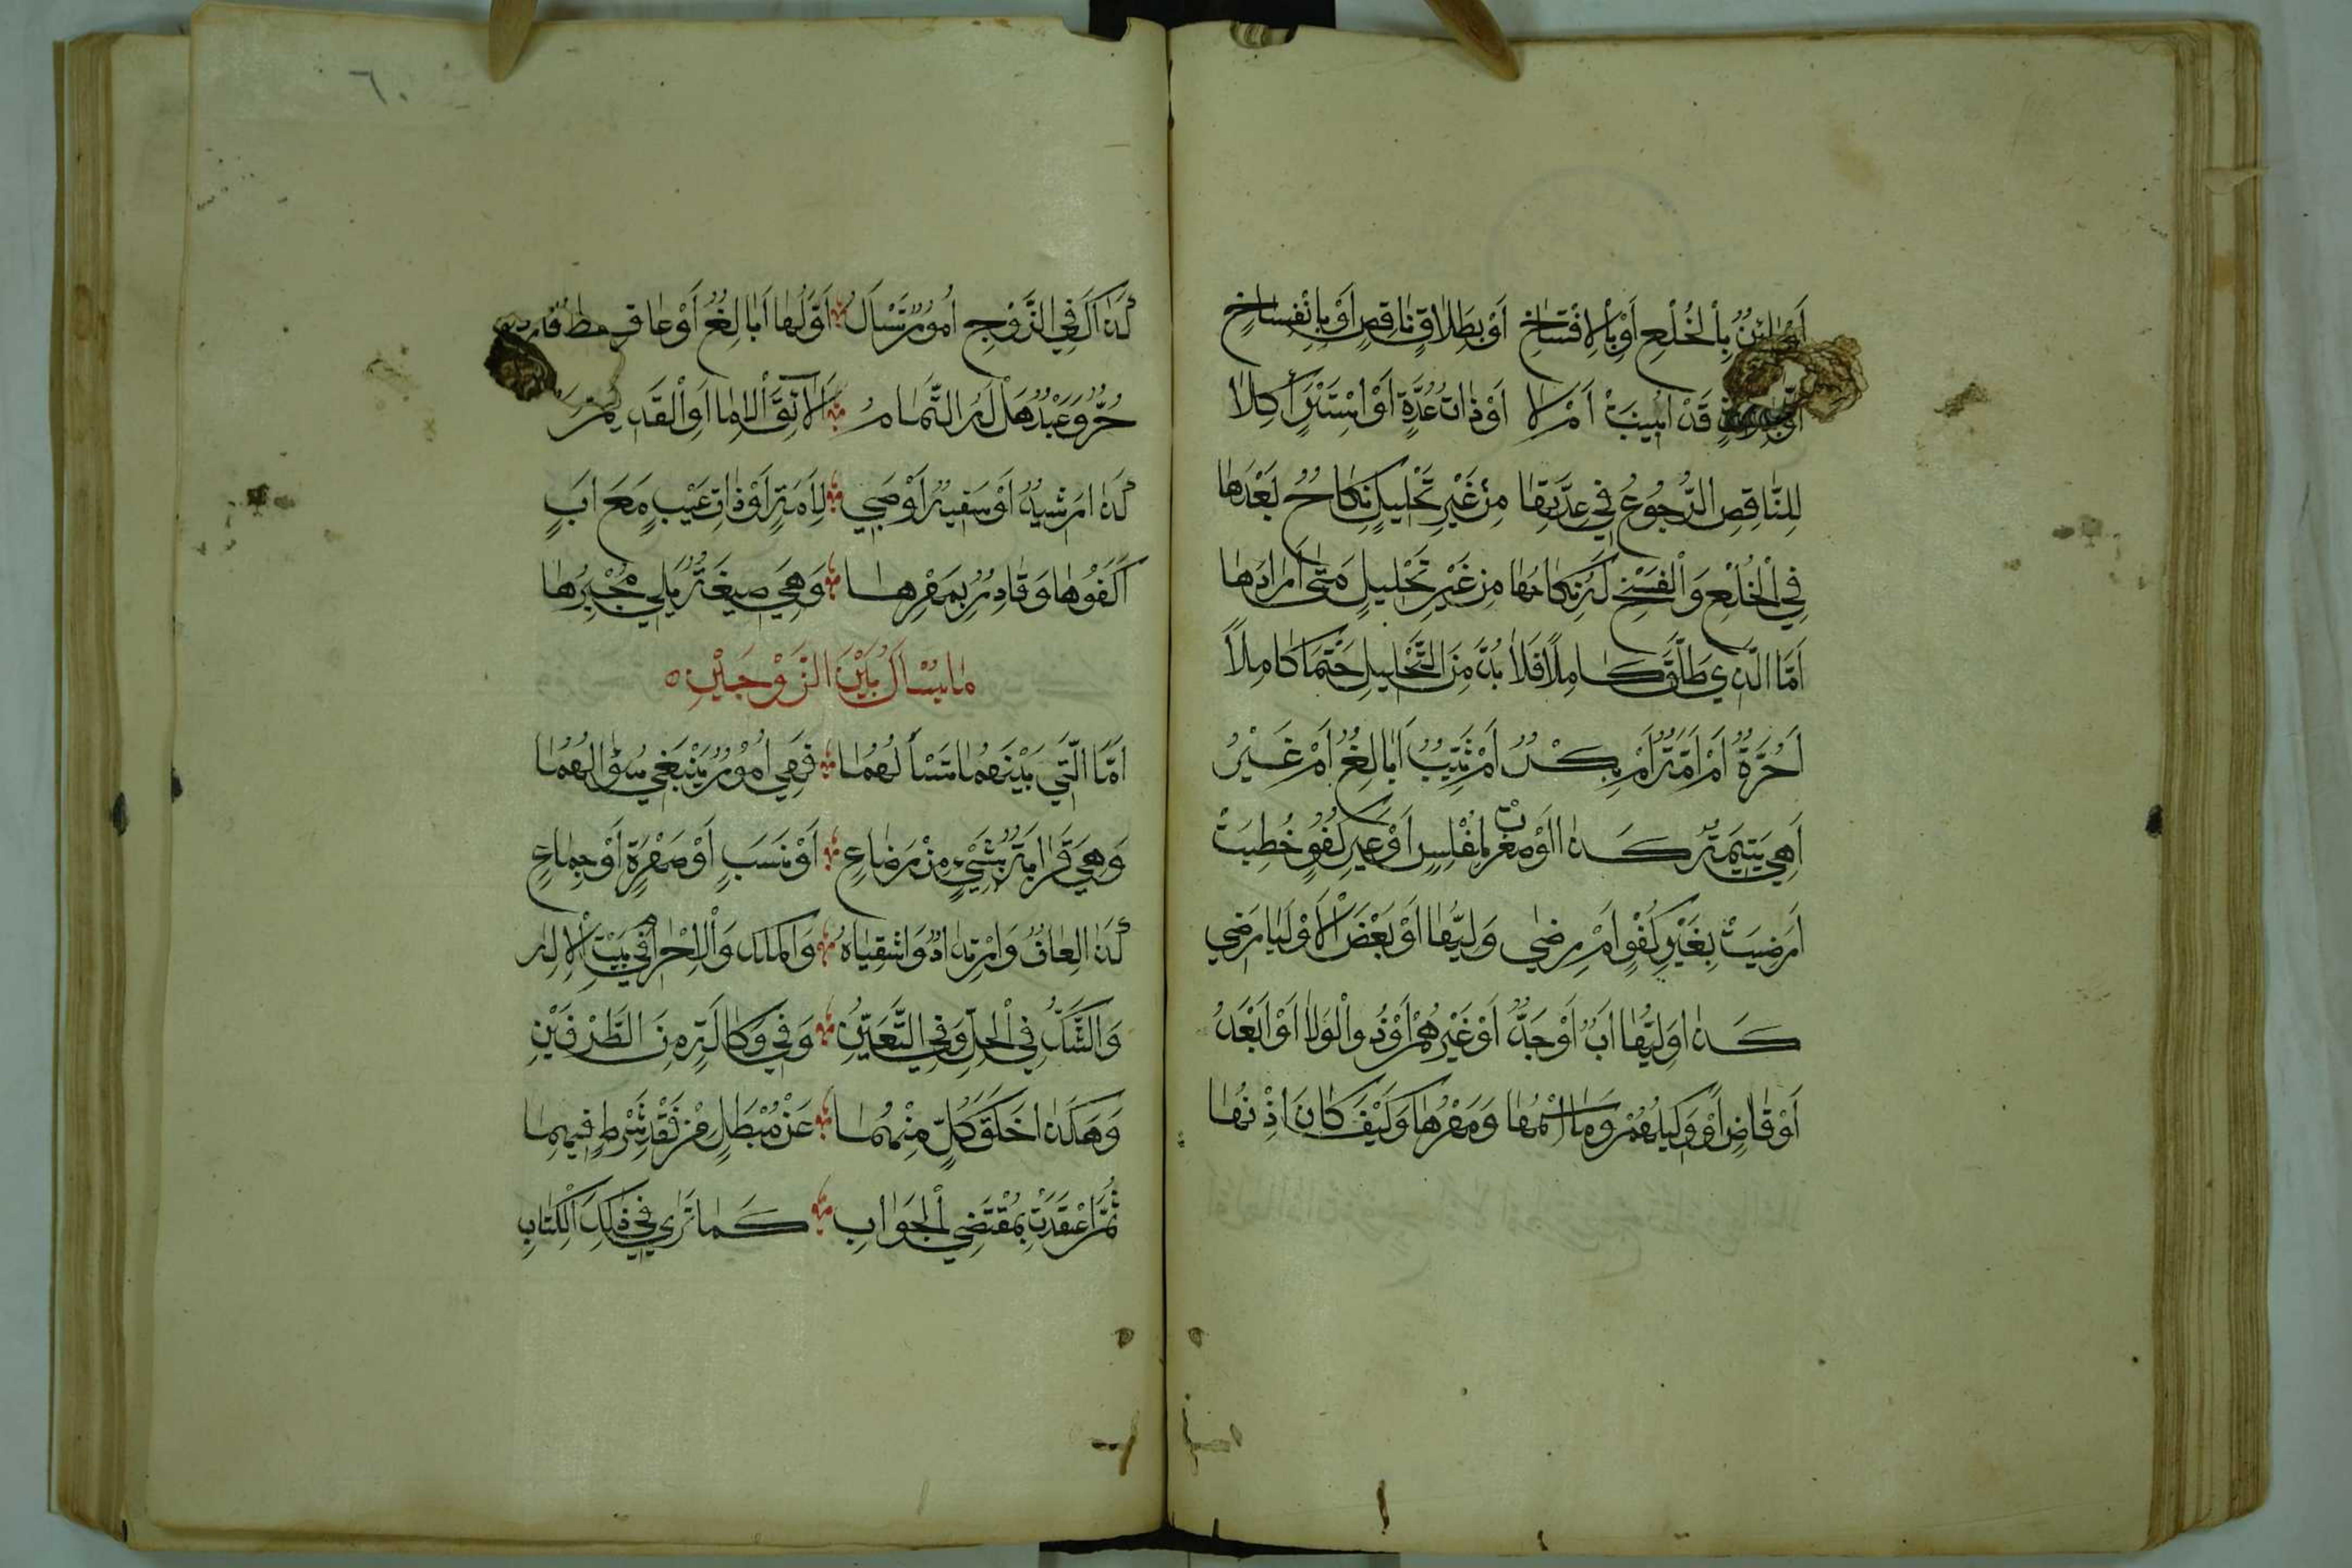 بِالْخُلْعِ أَوْ بِالْافْتِسَاخِ أَوْ بِطَلَاقٍ نَاقِصٍ أَوْ بِانْفِسَاخِ
قَدْ أُبِيْنَتْ أَمْ لَا أَوْ ذَاتُ عُدَّةٍ أَوْ اسْتَبْرَاكَلَا
لِلنَّاقِصِ الرُّجُوعُ فِي عِدَّتِهَا مِنْ غَيْرِ تَحْلِيلٍ نِكَاحٌ بَعْدَهَا
فِي الْخُلْعِ وَالْفَسْخِ لَهُ نِكَاحُهَا مِنْ غَيْرِ تَحْلِيلٍ مَتَى أَرَادَهَا
أَمَّا الَّذِي طَلَّقَ كَامِلًا فَلَا بُدَّ مِنَ التَّحْلِيلِ حَتْمًا كَامِلًا
أَحُرَّةٌ أَمْ أَمَةٌ أَمْ بِكْرٌ أَمْ ثَيِّبٌ أَبَالِغٌ أَمْ غَيْرُ
أَهِيَ يَتِيمَةٌ كَذَا أَوْ صَغُرَتْ لِمُفْلِسٍ أَوْ غَيْرِ كُفُوٍ خُطِبَتْ
أَرَضِيَتْ بِغَيْرِ كُفْوٍ أَمْ رِضَى وَلِيُّهَا أَوْ بَعْضَ الْأَوْلِيَا رَضِي
كَذَا وَلِيُّهَا أَبٌ أَوْ جَدٌّ أَوْ غَيْرُهُمْ أَوْ ذُو الْوَلَا أَوْ أَبْعَدُ
أَوْ قَاضٍ أَوْ وَكِيلُهُمْ وَمَا اسْمُهَا وَمَهْرُهَا وَكَيْفَ كَانَ اذْنُهَا
٦٠
كَذَاكَ فِي الزَّوْجِ أُمُورٌ تَسْأَلُ أَوَّلُهَا أَبَالِغٌ أَوْ عَاقِ
حُرٌّ وَعَبْدٌ هَلْ لَهُ التَّمَامُ
كَذَا رَشِيدٌ أَوْ سَفِيهٌ أَوْ صَبِي لِأَمَةٍ أَوْ ذَاتِ عَيْبٍ مَعَ ابٍ
أَكُفُوُهَا وَقَادِرٌ بِمَهْرِهَا وَهِيَ صِيغَةٌ يَلِي مُجْبِرُهَا
مَا يُسْأَلُ بَيْنَ الزَّوْجَيْنِ
أَمَّا الَّتِي بَيْنَهُمَا تَسْأَلُهُمَا فَهِيَ أُمُورٌ يَنْبَغِي سُؤَالُهُمَا
وَهِيَ قَرَابَةٌ بِشَيْءٍ مِنْ رَضَاعِ أَوْ نَسَبٍ أَوْ صَهْرَةٍ أَوْ جِمَاعِ
كَذَا لِعَانٌ وَارْتِدَادٌ وَاشْتِبَاهُ وَالْمَلِكُ وَالْإِحْرَامُ فِي بَيْتِ الْإِلٰهِ
وَالشَّكُّ فِي الْحِلِّ وَفِي التَّعَيُّنِ وَفِي وَكَالَةٍ مِنَ الطَّرْفَيْنِ
وَهَكَذَا خَلَقَ كُلٍّ مِنْهُمَا عَنْ مُبْطِلٍ مِنْ فَقْدِ شَرْطٍ فِيهِمَا
ثُمَّ اعْقِدَنْ بِمُقْتَضَى الْجَوَابِ كَمَا تَرَى فِي ذَلِكَ الْكِتَابِ